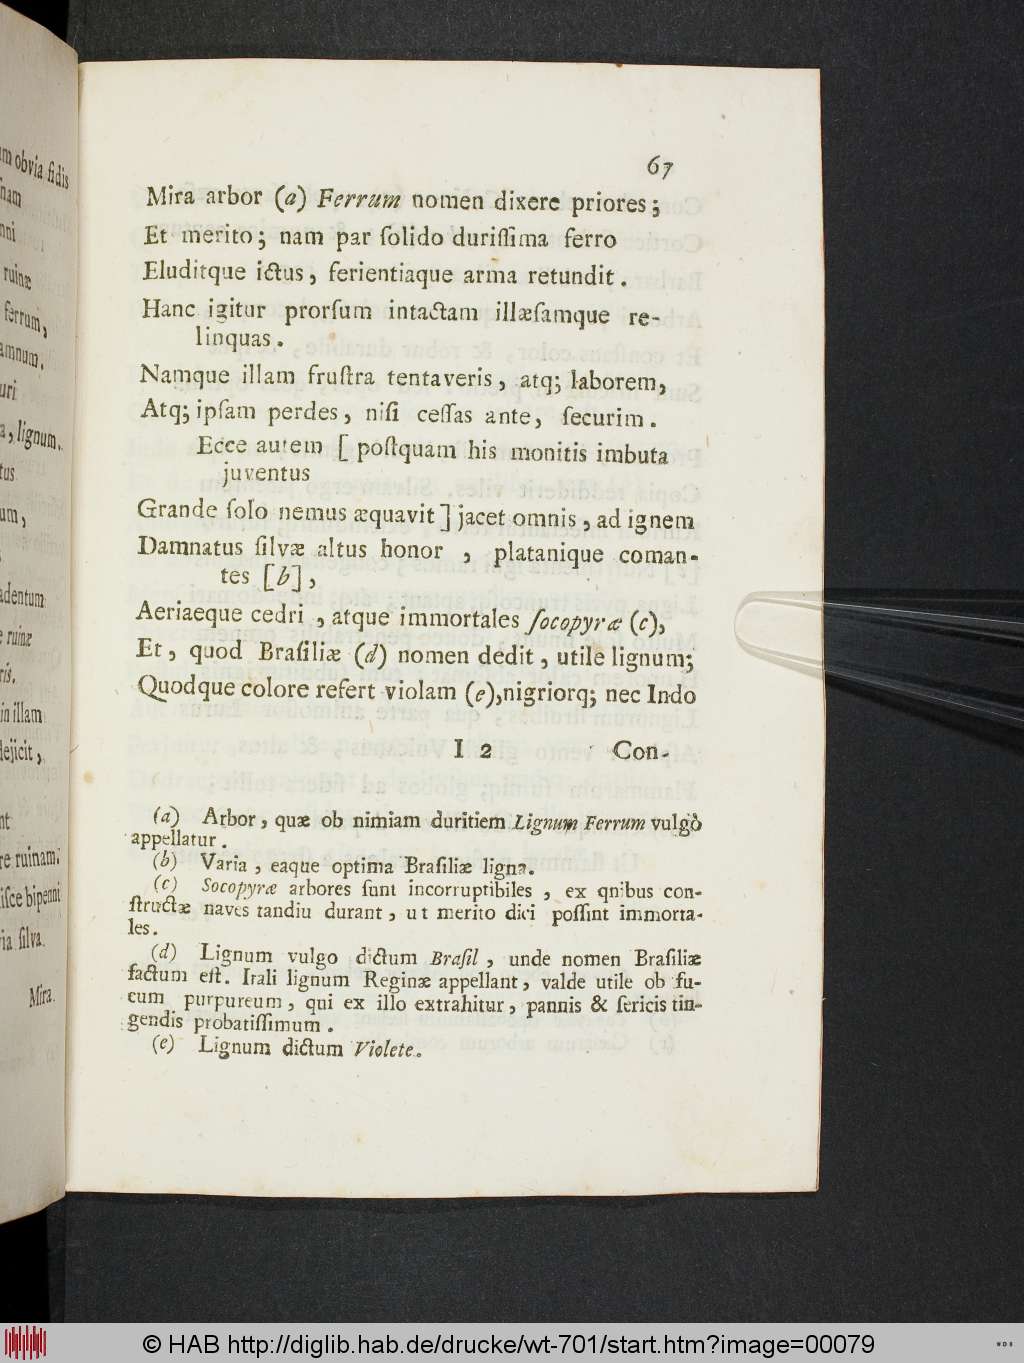 um obvia fidis
ruinæ
ferrum,
amnum.
uri
a, lignum.
tus
um,
adentum
e ruinæ
ris.
in illam
dejicit,
nt
re ruinam.
isce bipenni
ia silva.
Mira.
67
Mira arbor (a) Ferrum nomen dixere priores;
Et merito; nam par ſolido duriſſima ferro
Eluditque ictus, ferientiaque arma retundit.
Hanc igitur prorſum intactam illæſamque re-
linquas.
Namque illam fruſtra tentaveris, atq; laborem,
Atq; ipſam perdes, niſi ceſſas ante, ſecurim.
Ecce autem [ poſtquam his monitis imbuta
juventus
Grande ſolo nemus æquavit ] jacet omnis, ad ignem
Damnatus ſilvæ altus honor, platanique coman-
tes [b],
Aeriaeque cedri, atque immortales ſocopyræ (c),
Et, quod Braſiliæ (d) nomen dedit, utile lignum;
Quodque colore refert violam (e), nigriorq; nec Indo
I 2 Con-
(a) Arbor, quæ ob nimiam duritiem Lignum Ferrum vulgò
appellatur.
(b) Varia, eaque optima Braſiliæ ligna.
(c) Socopyræ arbores ſunt incorruptibiles, ex qnibus con-
ſtructæ naves tandiu durant, ut merito dici poſſint immorta-
les.
(d) Lignum vulgo dictum Braſil, unde nomen Braſiliæ
factum eſt. Itali lignum Reginæ appellant, valde utile ob fu-
cum purpureum, qui ex illo extrahitur, pannis & ſericis tin-
gendis probatiſſimum.
(e) Lignum dictum Violete.
© HAB http://diglib.hab.de/drucke/wt-701/start.htm?image=00079